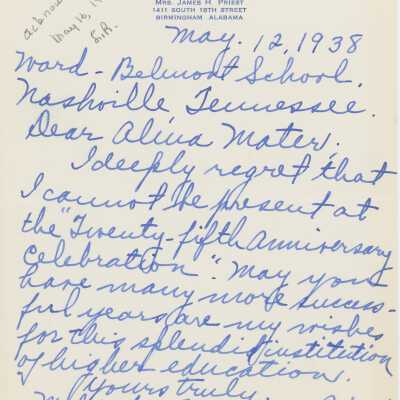 Mrs. James H. Priest
1411 South 18th Street
Birmingham Alabama
May 16, 19
May. 12, 1938
Ward-Belmont School.
Nashville Tennessee.
Dear Alma Mater,
I deeply regret that
I cannot be present at
the "Twenty-fifth Anniversary
Celebration". May you
have many more success-
ful years are my wishes
for this splendid institution
of higher education.
Yours truly,